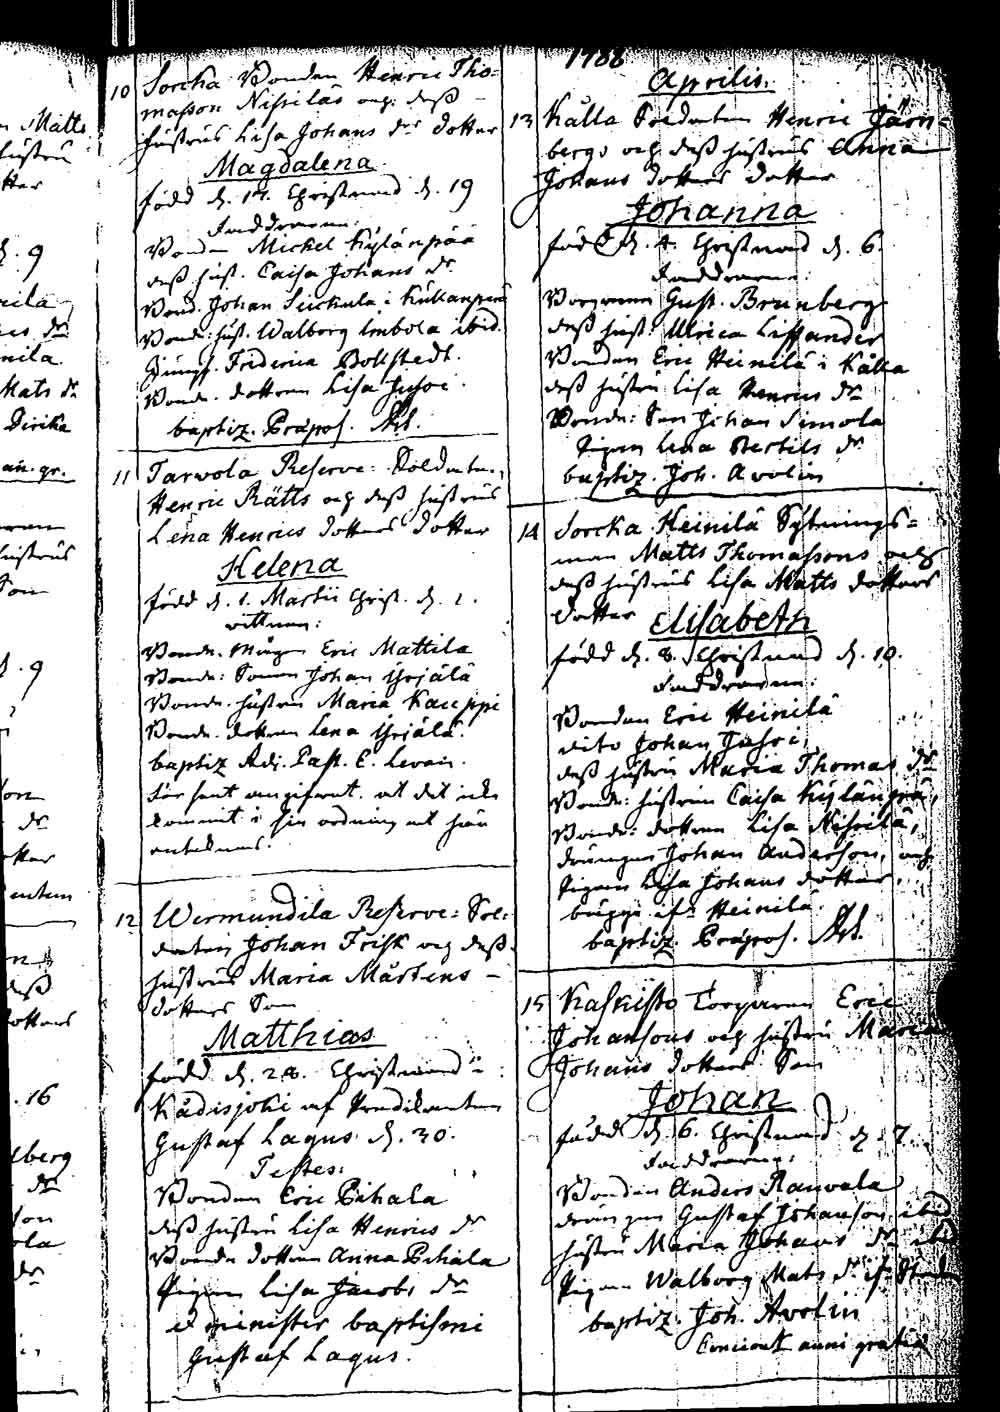 n Matts
hustru
tter
d. 9
Mats dr
Dirika
Son
d. 9
dr
otter
entem
dotters
. 16
lberg
dr
dr
10 Sorcka Bonden Henric Tho=
masson Nissiläs och dess
hustrus Lisa Johans drs dotter
Magdalena
född d. 17. Christnad d. 19
Faddrarne:
Bonden Mickel Kylänpää
dess hust. Caisa Johans dr
Bond. Johan Suckula i Kullanperä
Bonde hust. Walborg Imbola ibid.
Jungf. Friderica Bollstedt.
Bonde dottren Lisa Jusoi.
baptiz. Præpos.
11 Tarwola Reserve: Soldaten
Henric Rätts och dess hustrus
Lena Henrics dotters dotter
Helena
född d. 1. Martii Christ. d. 2.
wittnen:
Bonde Mågen Eric Mattila
Bonde: Sonen Johan Yrjälä
Bonde hustrun Maria Kauppi
Bonde dottren Lena Yrjälä.
baptiz Adj. Past. E. Levan.
För sent angifwit, at det icke
kommit i sin ordning at här
antecknas.
12 Wermundila Reserve: Sol=
daten Johan Frisk och dess
hustrus Maria Mårtens
dotters Son
Matthias
född d. 28. Christnad i
Kådisjoki af Predikanten
Gustaf Lagus d. 30.
Testes:
Bonden Eric Pihala
dess hustru Lisa Henrics dr
Bonde dottren Anna Pihala
Pigan Lisa Jacobs dr
minister baptismi
Gustaf Lagus.
1788
Aprilis.
13 Kålla Soldaten Henric Järn=
bergs och dess hustrus Anna
Johans dotters dotter
Johanna
född d. 4. Christnad d. 6.
Faddrarne:
Borgaren Gust. Brunberg
dess hust. Ulrica Lissander
Bonden Eric Heinilä i Kålla
dess hustru Lisa Henrics dr
Bonde: Son Johan Simola
Pigan Lena Bertils dr
baptiz. Joh. Avolin
14 Sorcka Heinilä Sytnings=
man Matts Thomassons och
dess hustrus Lisa Matts dotters
dotter Elisabeth
född d. 8. Christnad d. 10.
Faddrarne:
Bonden Eric Heinilä
dito Johan Jusoi,
dess hustru Maria Thomas dr
Bonde: hustrun Caisa Kylänpää,
Bonde: dottren Lisa Nissilä,
drängen Johan Anderson, och
Pigan Lisa Johans dotter,
bägge ifr. Heinilä
baptiz. Præpos.
15 Kaskisto Torparen Eric
Johansons och hustru Maria
Johans dotters Son
Johan
född d. 6. Christnad d. 7.
Faddrarne:
Bonden Anders Rauvala
drängen Gustaf Johanson ibid
hustru Maria Johans dr ibid
Pigan Walborg Mats dr
baptiz. Joh. Avolin
Concionat anni gratiæ